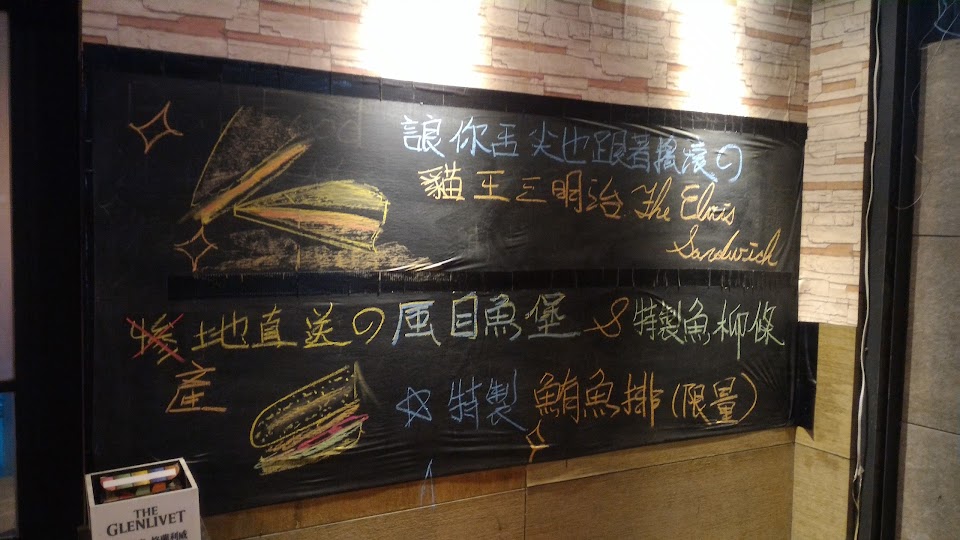 讓你舌尖也跟著搖滾の
貓王三明治 The Elvis
Sandwich
地直送の虱目魚堡 & 特製魚柳條
產
☆特製鮪魚排(限量)
THE
GLENLIVET